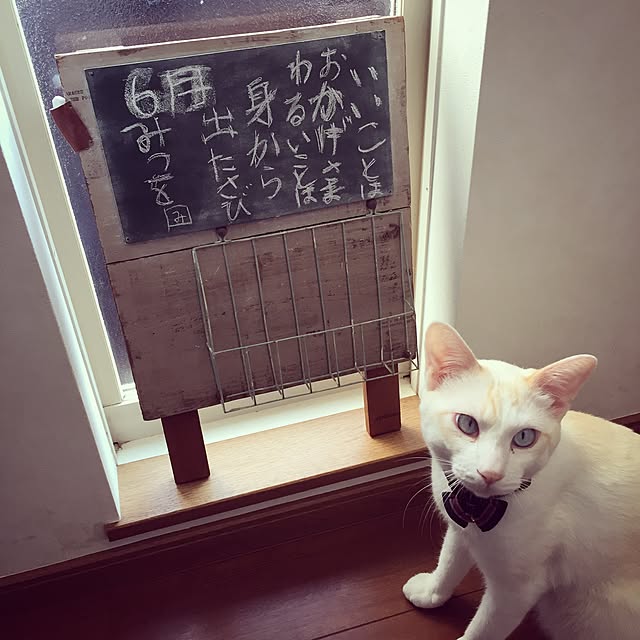 いいことは
おかげさま
わるいことは
身から
出たさび
6月
みつを